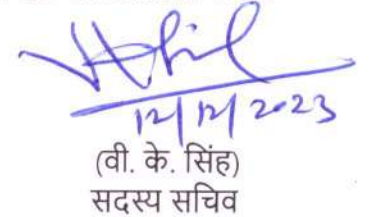 12/12/2023
(वी. के. सिंह)
सदस्य सचिव